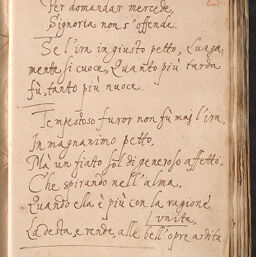 Per domandar mercede,
Signoria non s'offende.
Se l'ira in giusto petto, Lunga
mente si cuoce, Quanto più tarda
fù, tanto più nuoce.
Tempestoso furor non fù maj l'ira,
In magnanimo petto,
Mà un fiato sol di generoso affetto,
Che spirando nell'alma,
Quando ella è più con la ragione
Vnita,
La desta, e rende, alle bell'opre ardita.